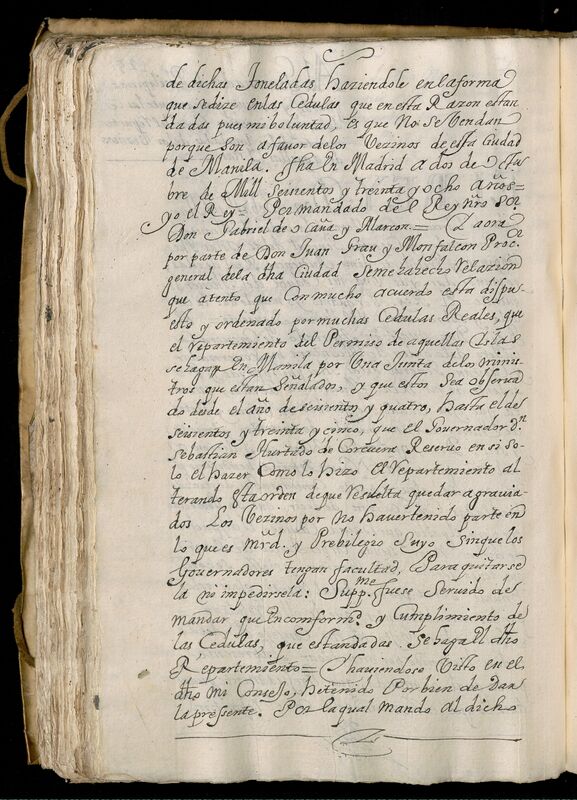 de dichas Joneladas haziendole en la forma
que se dize en las Cedulas que en esta Razon estan
dadas pues mi boluntad, es que No se Vendan
porque son a favor de los Vezinos de esta Ciudad
de Manila. fha En Madrid a dos de Octu
bre de Mill Seiscientos y treinta y ocho años=
yo el Rey= Por mandado del Rey nro Sor
Don Gabriel de Ocaña y Alarcon.= La ora
por parte de Don Juan Grau y Monfalcon Procor
general de la dha Ciudad Seme ha hecho Relazion
que atento que Con mucho acuerdo esta dispu-
esto y ordenado por muchas Cedulas Reales, que
el repartimiento del Permiso de aquellas Islas
se haga En Manila por Una Junta de los minis
tros que estan Señalados, y que esto se a observa
do desde el año de seiscientos y quatro, hasta el de
seiscientos y treinta y cinco, que el Governador Dn
Sebastian Hurtado de Corcuera Reservo en si so-
lo el hazer Como lo hizo El repartimiento al
terando esta orden de que resulta quedar agravia-
dos Los Vezinos por no haver tenido parte en
lo que es mrd. y Prebilegio Suyo Sin que los
Governadores tengan facultad, Para quitarse
la ni impedirsela: Suppme. fuese Servido de
mandar que En comformd. y Cumplimiento de
las Cedulas, que estan dadas Se haga El dho
Repartimiento= Y haviendose Visto en el
dho mi Consejo, he tenido Por bien de Dar
la pressente. Por la qual mando al dicho